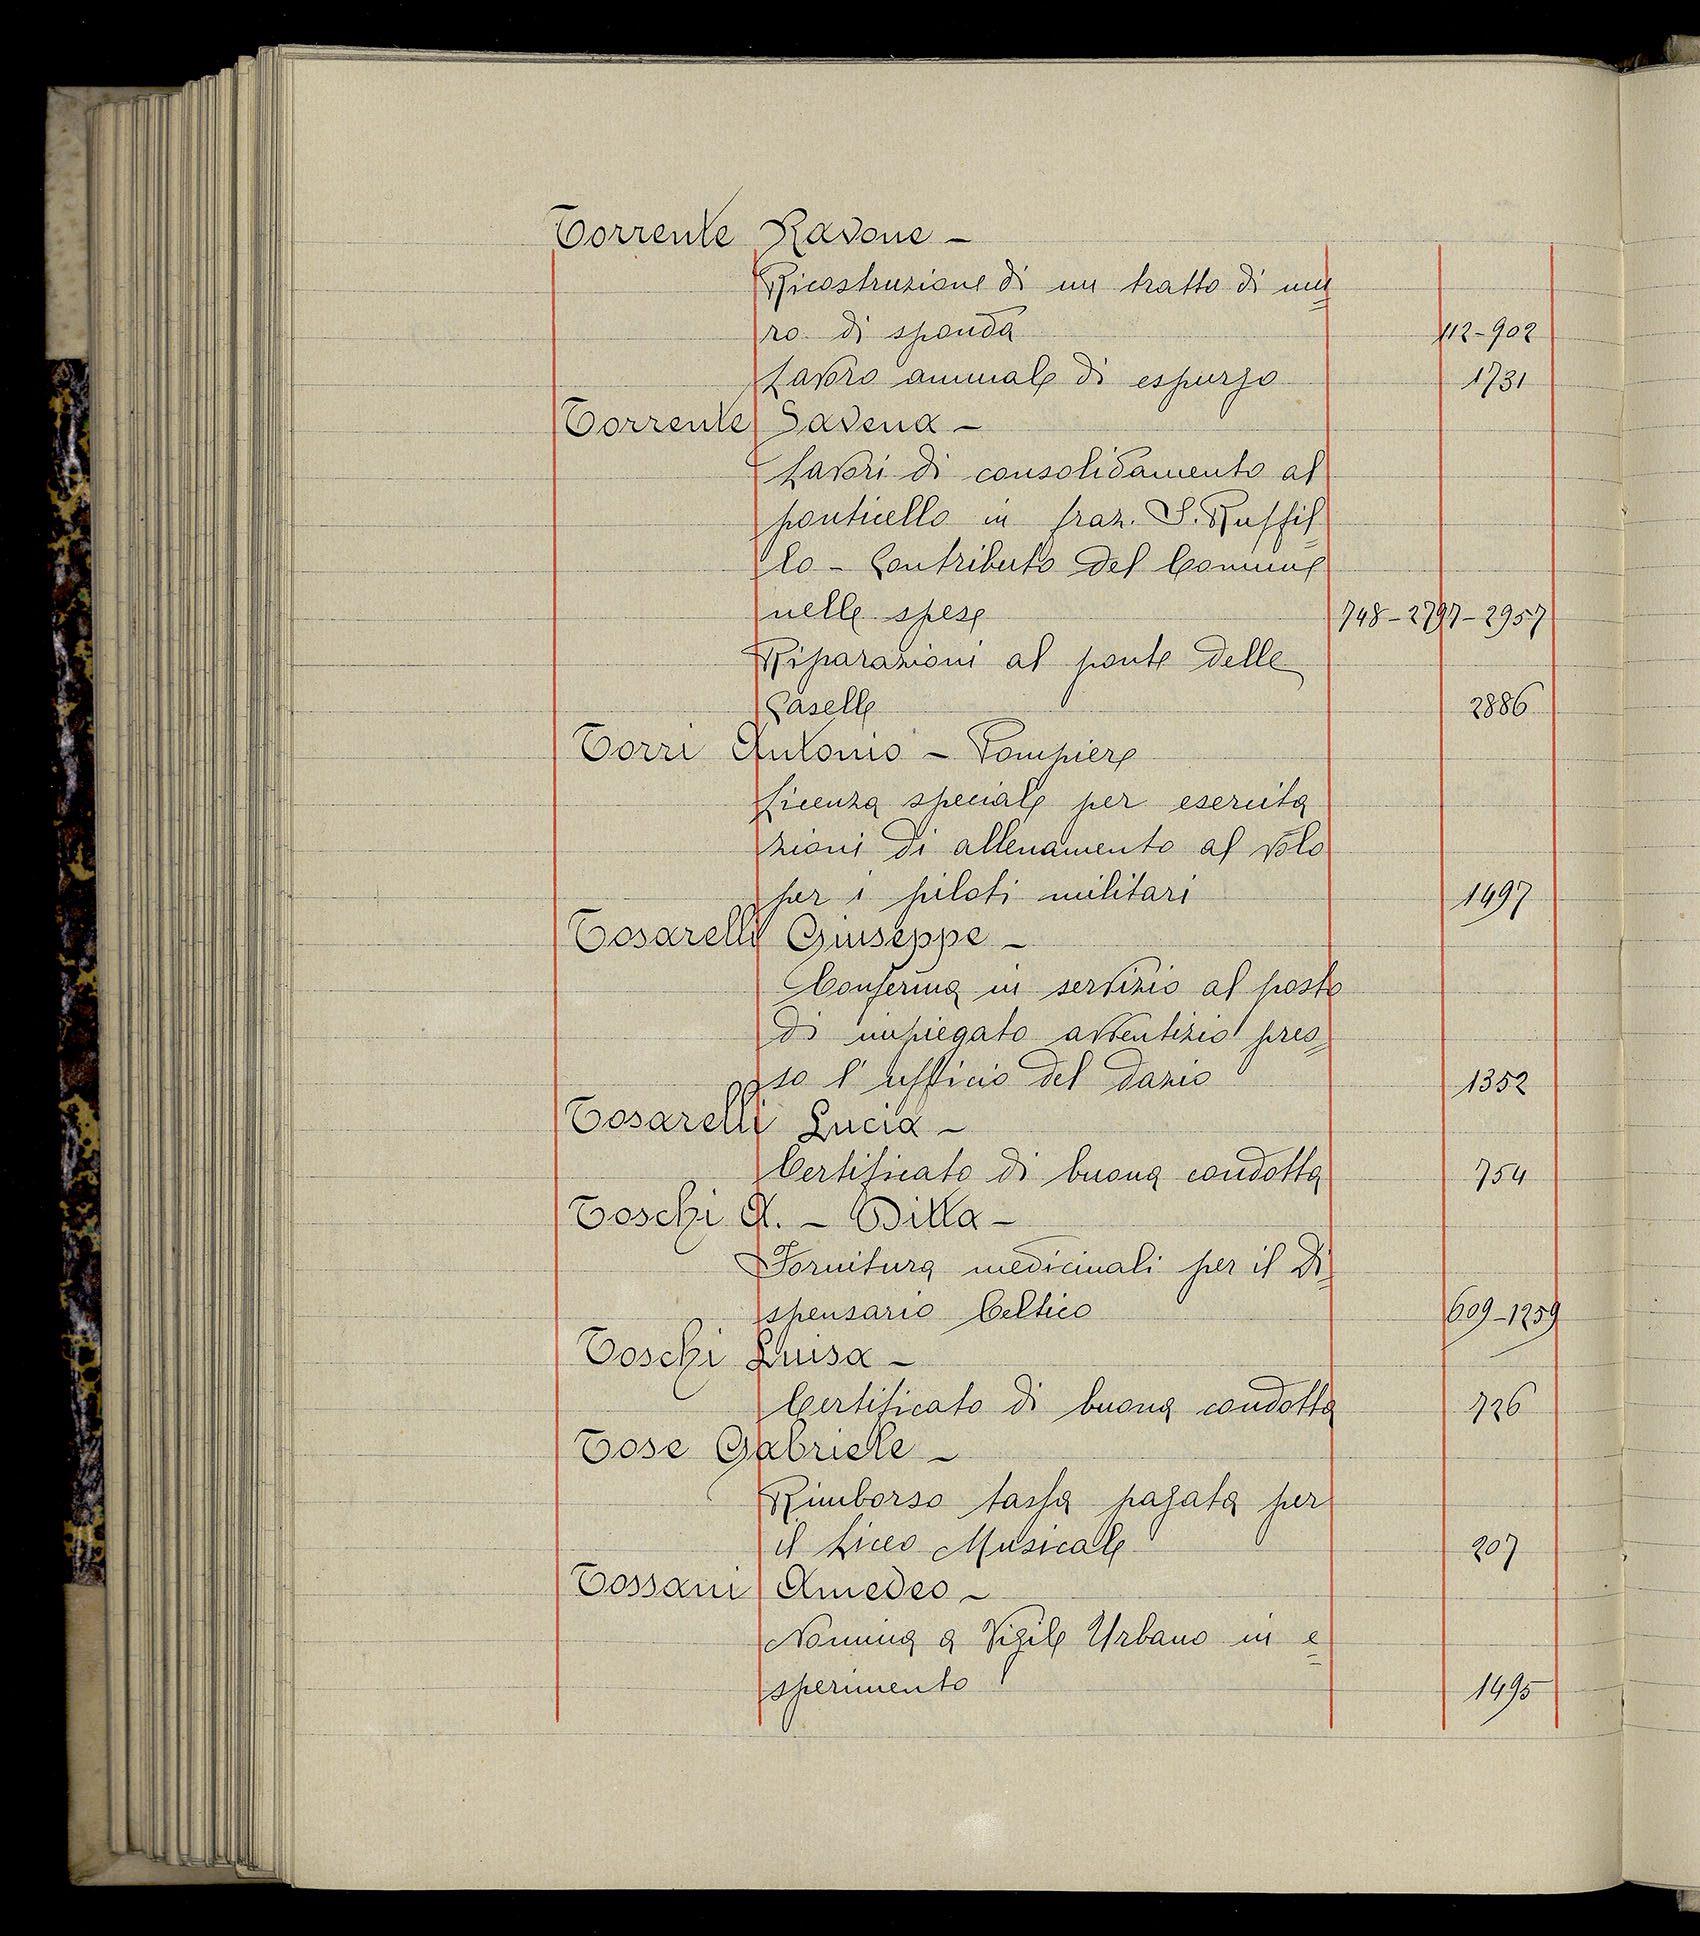 Torrente Ravone -
Ricostruzione di un tratto di mu=
ro di sponda 112-902
Lavoro annuale di espurgo 1731
Torrente Savena -
Lavori di consolidamento al
ponticello in fraz. S. Ruffil=
lo - Contributo del Comune
nelle spese 748-2797-2957
Riparazioni al ponte delle
Caselle 2886
Torri Antonio - Pompiere
Licenza speciale per esercita
zioni di allenamento al volo
per i piloti militari 1497
Tosarelli Giuseppe -
Conferma in servizio al posto
di impiegato avventizio pres=
so l'ufficio del dazio 1352
Tosarelli Lucia -
Certificato di buona condotta 754
Toschi A. - Ditta -
Fornitura medicinali per il Di=
spensario Celtico 609-1259
Toschi Luisa -
Certificato di buona condotta 726
Tose Gabriele -
Rimborso tassa pagata per
il Liceo Musicale 207
Tossani Amedeo -
Nomina a Vigile Urbano in e=
sperimento 1495